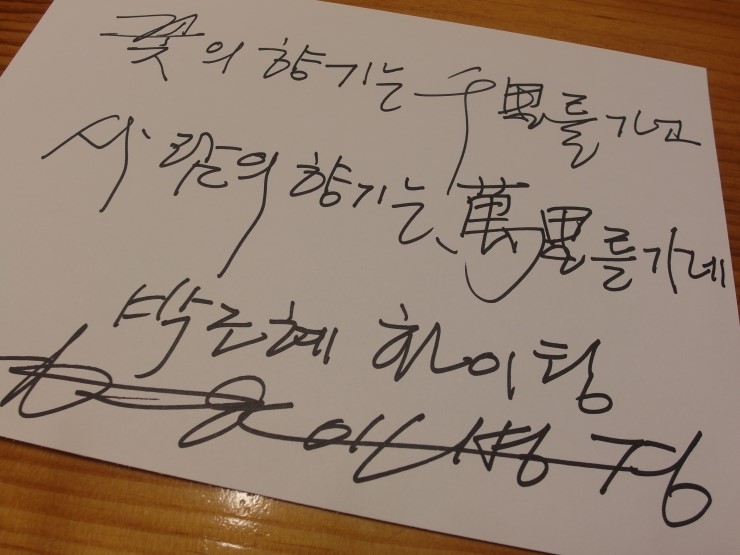 꽃의 향기는 千里를 가고
사람의 향기는 萬里를 가네
박근혜 화이팅